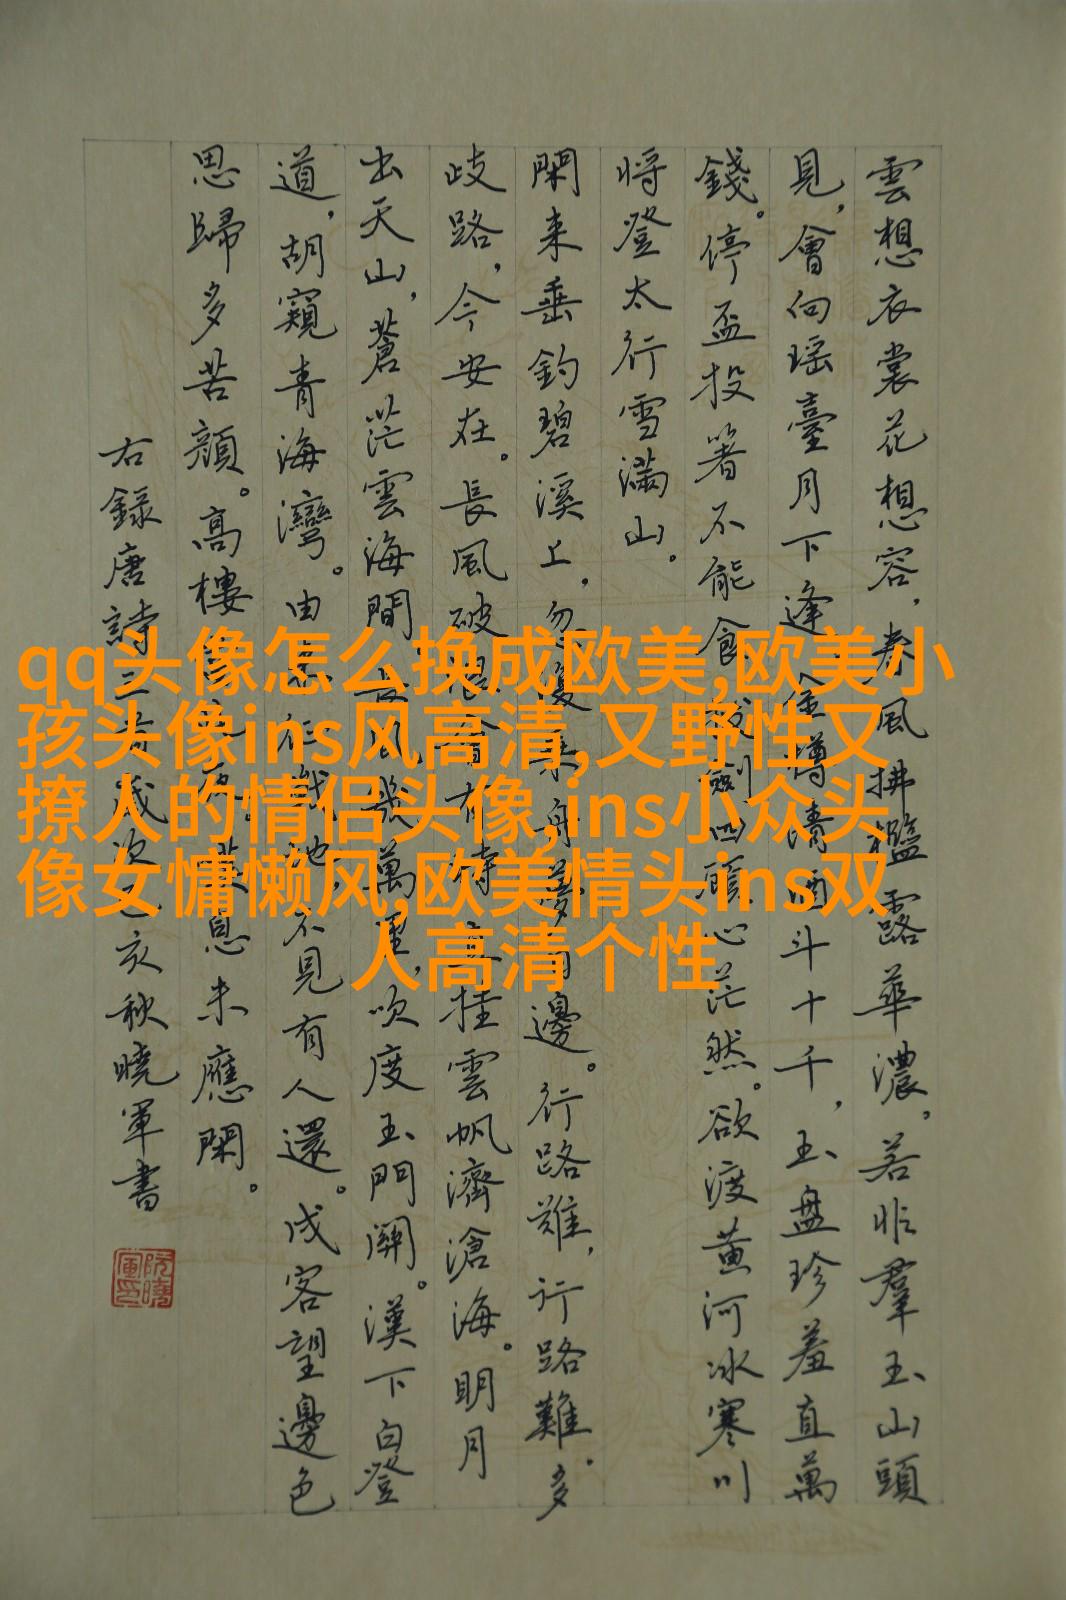 雲想衣裳花想容，春風拂檻露華濃，若非羣玉山頭
見，會向瑶臺月下逢金樽清酒斗十千，玉盤珍羞直萬
錢。停盃投箸不能食拔劍四顧心茫然。欲渡黃河冰寒川
将登太行雪滿山。
閑来垂釣碧溪上，忽復乘舟夢日邊。行路難，行路難。多
歧路，今安在。長風破浪會有時直挂雲帆濟滄海。明月
出天山，蒼茫雲海間，長風幾萬里，吹度玉門關。漢下白登
道，胡窺青海灣。由来征戰地，不見有人還。戍客望邊色
思歸多苦顏。高樓當此夜歎息未應閑。
右録唐詩三首歲次己亥秋曉軍書
阮曉軍印
qq头像怎么换成欧美,欧美小
孩头像ins风高清,又野性又
撩人的情侣头像,ins小众头
像女慵懒风,欧美情头ins双
人高清个性